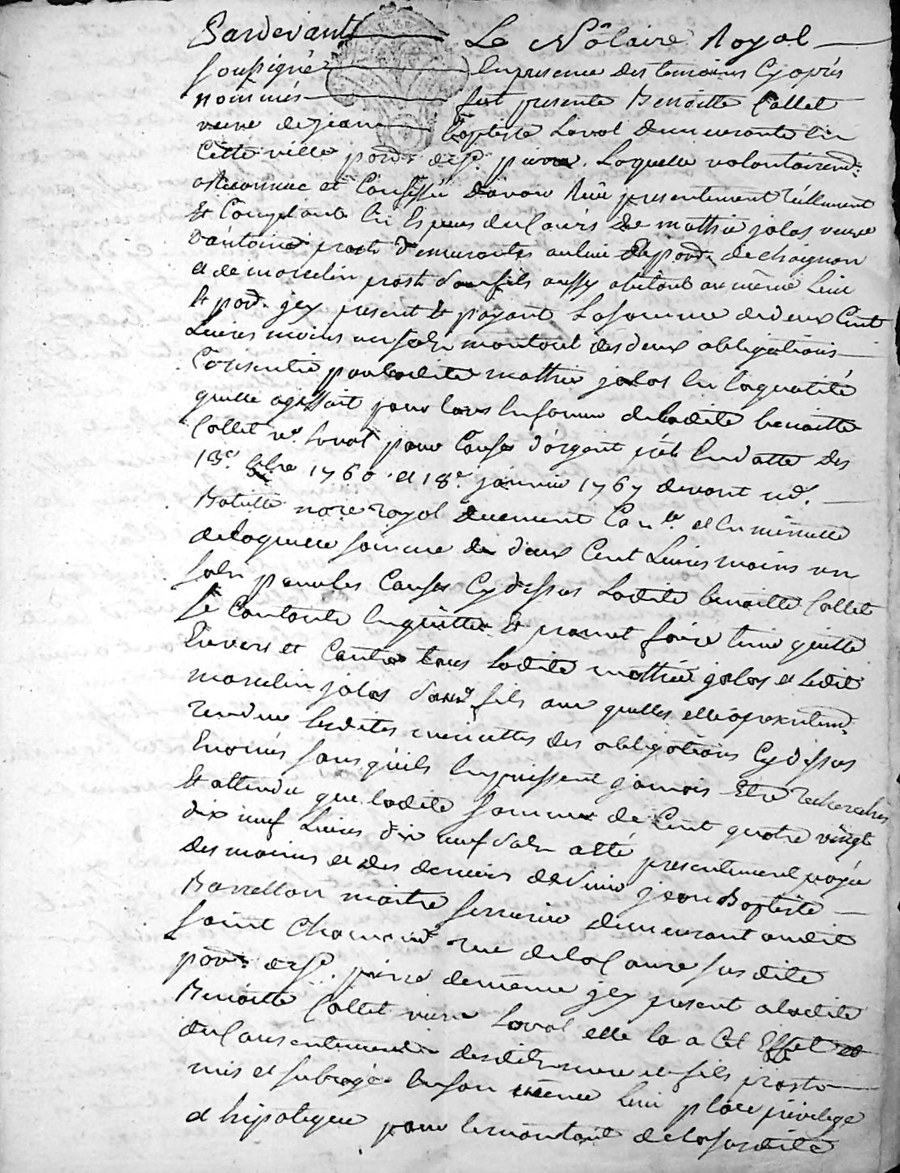 Pardevant Le Nôtaire Royal
soussigné En presence des temoins Cy aprés
nommés fut presente Benoitte Collet
veuve de jean Baptiste Laval demeurante En
Cette ville parr. de St. pierre. Laquelle volontairemt.
a Reconnue et Confessée d'avoir Reçû presentement réellement
Et Comptant En Especes du Cours de mathie jalas veuve
d'antoine prost demeurantes au lieu parr. de chagnon
et de marcelin prost son fils aussy abitant au même Lieu
et parr. jcy present et payant La somme de deux Cent
Livres moins un sol montant des deux obligations
Consentie par ladite mathie jalas En la qualité
quelle agissait pour lors En faveur de ladite benoitte
Collet ve. Laval pour Cause d'argent prêt En datte des
13e. 1760. et 18e. janvier 1767 devant me.
notre royal duement Con.lé et En minutte
de laquelle somme de deux Cent Livres moins un
sol pour les Causes Cy dessus Ladite benoitte Collet
se Contante En quitte et promet faire tenir quitte
Envers et Contre tous Ladite mathie jalas et Ledit
marcelin jalas son fils aux quelles elle a presentemt.
rendue lesdites minuttes des obligations Cy dessus
Enoncés sans qu'ils En puissent jamais Etre recherchés
Et attendu que ladite somme de Cent quatre vingt
dix neuf Livres dix neuf sols a été presentement payée
des mains et des deniers de Sieur jean Baptiste
maitre serrurier demeurant audit
saint Chamond rue de la susdite
parr. de St. pierre de même jcy present a ladite
Benoitte Collet veuve Laval elle la a Cet Effet
du Consentement desdits mere et fils prost
mis et subrogé En son même Lieu place privilege
et hipoteque pour le montant de la susdite